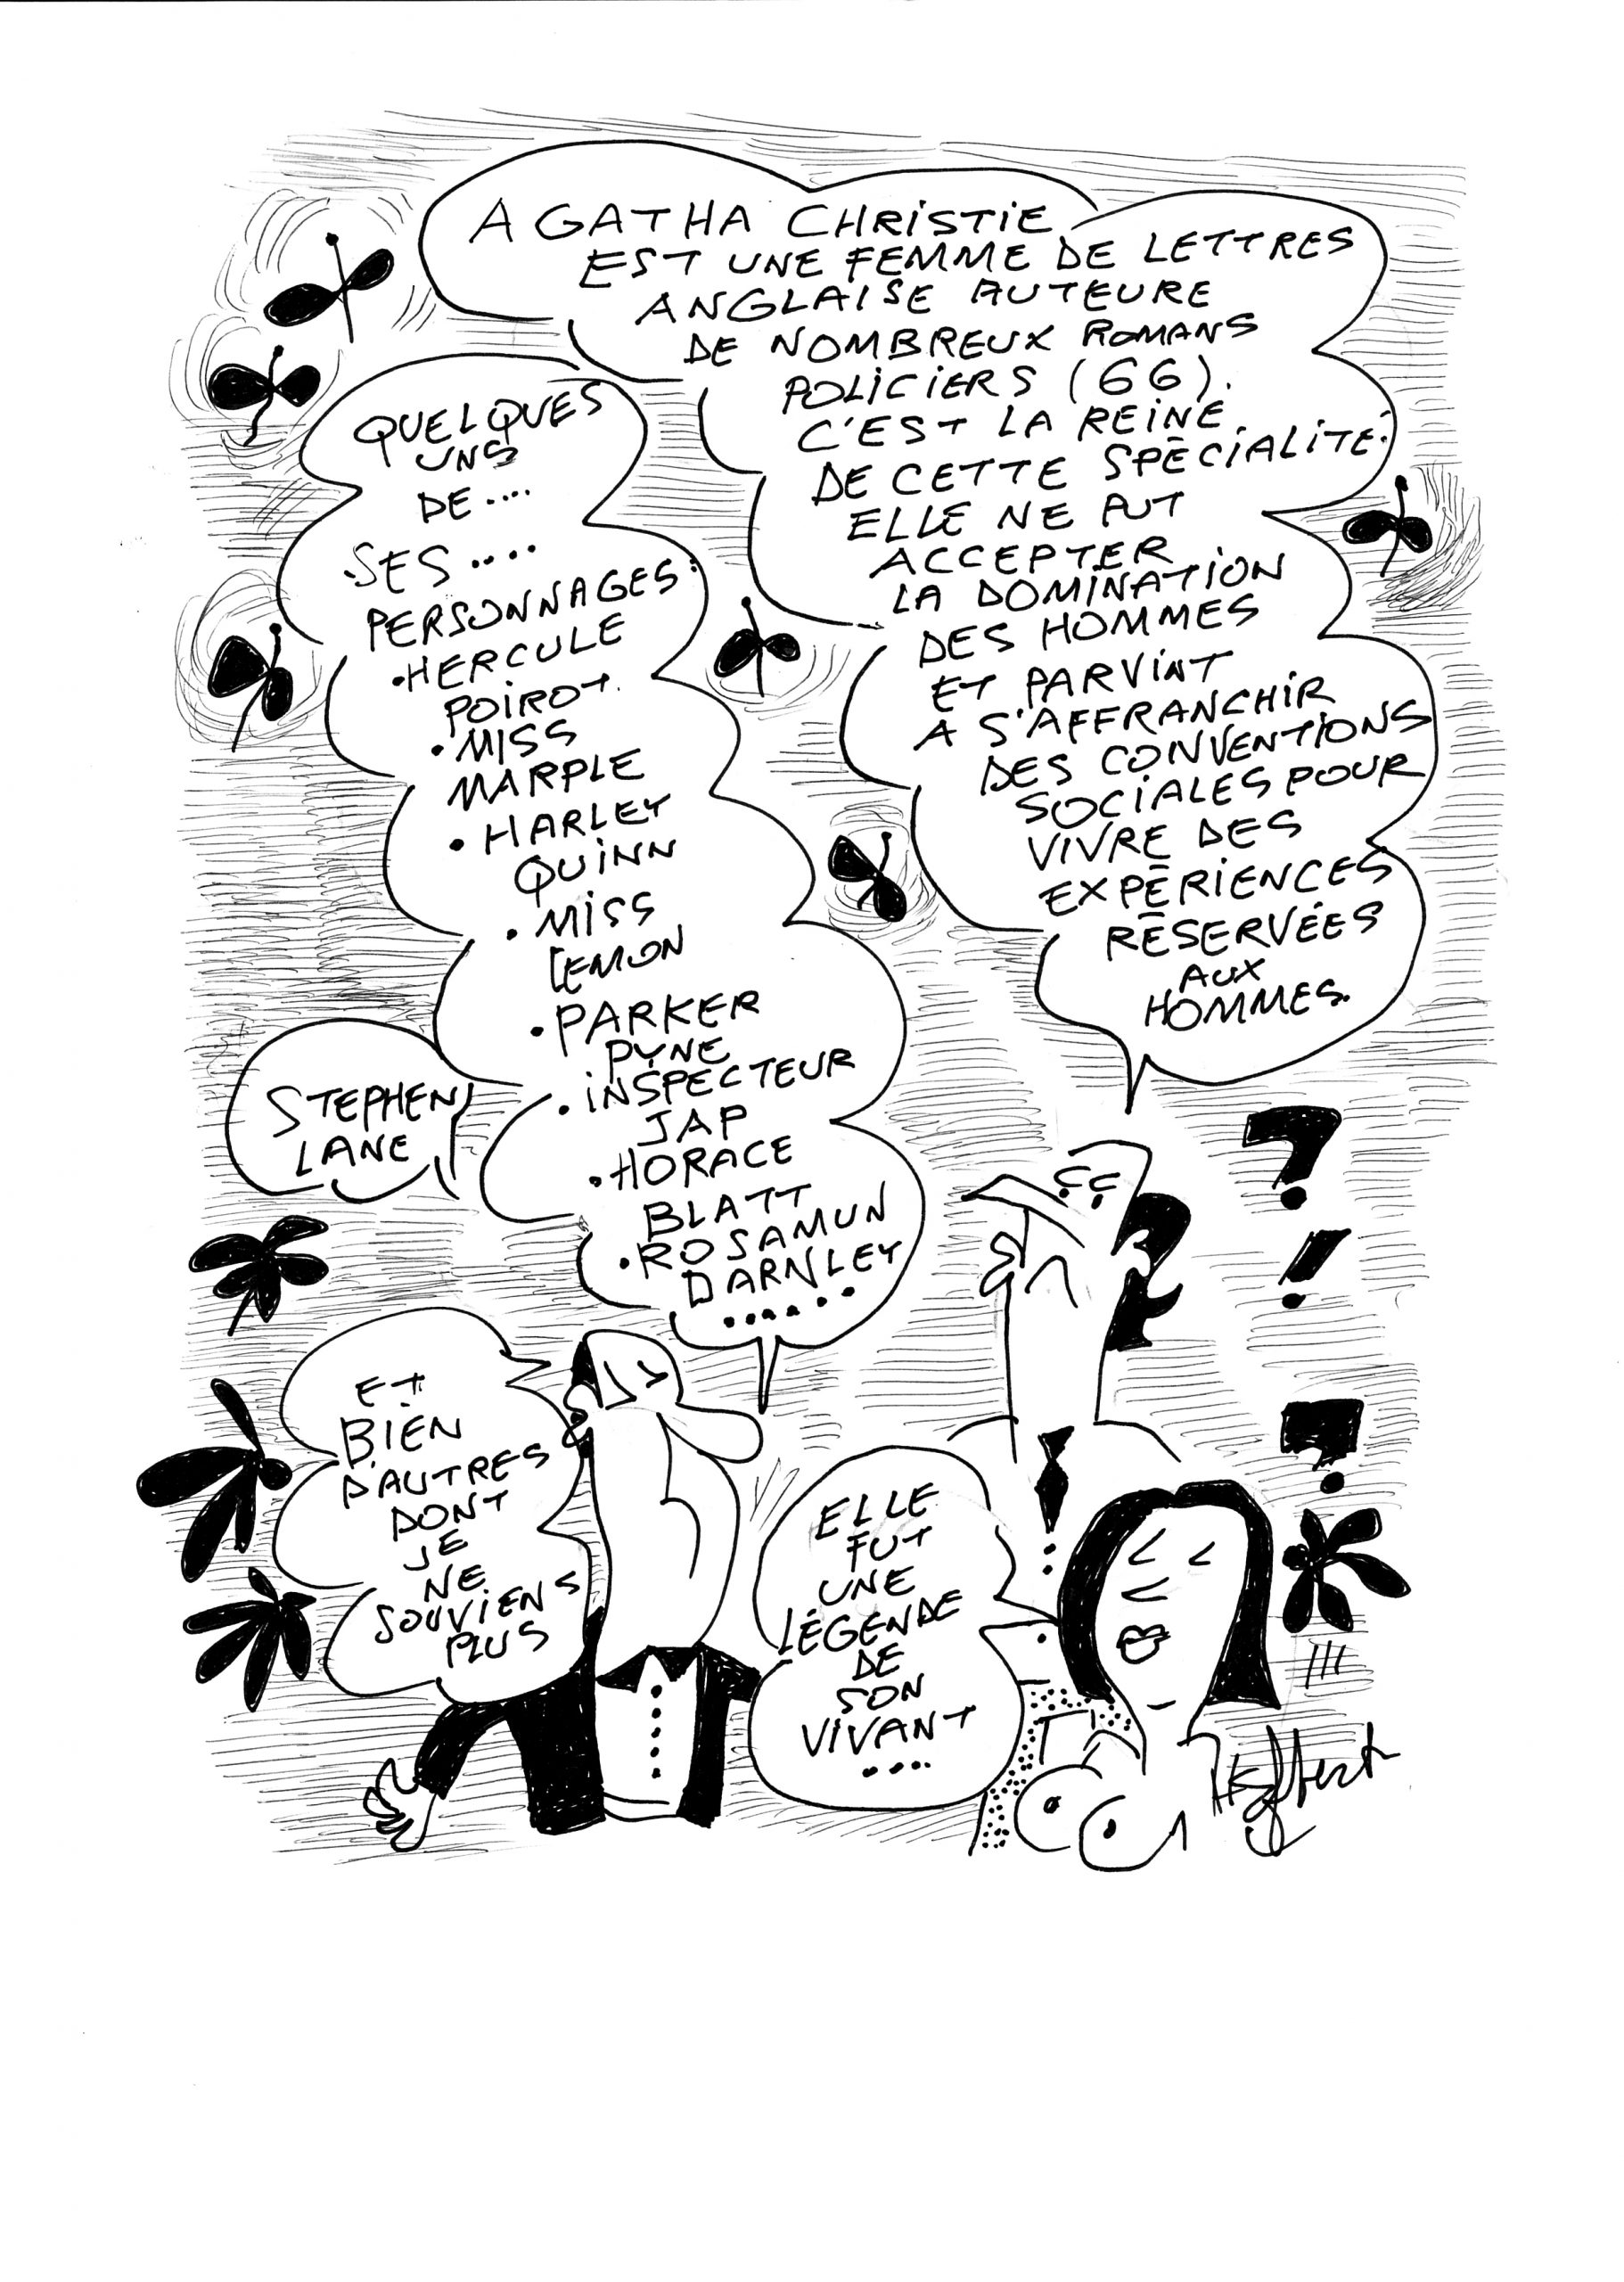 AGATHA CHRISTIE
EST UNE FEMME DE LETTRES
ANGLAISE AUTEURE
DE NOMBREUX ROMANS
POLICIERS (66).
C'EST LA REINE
DE CETTE SPÉCIALITÉ.
ELLE NE PUT
ACCEPTER
LA DOMINATION
DES HOMMES
ET PARVINT
A S'AFFRANCHIR
DES CONVENTIONS
SOCIALES POUR
VIVRE DES
EXPÉRIENCES
RÉSERVÉES
AUX
HOMMES.
QUELQUES
UNS
DE....
SES....
PERSONNAGES:
•HERCULE
POIROT.
•MISS
MARPLE
•HARLEY
QUINN
•MISS
LEMON
•PARKER
PYNE
•INSPECTEUR
JAP
•HORACE
BLATT
•ROSAMUN
DARNLEY
......
STEPHEN
LANE
ET
BIEN
D'AUTRES
DONT
JE
NE
SOUVIENS
PLUS
ELLE
FUT
UNE
LÉGENDE
DE
SON
VIVANT
....
?
!
?